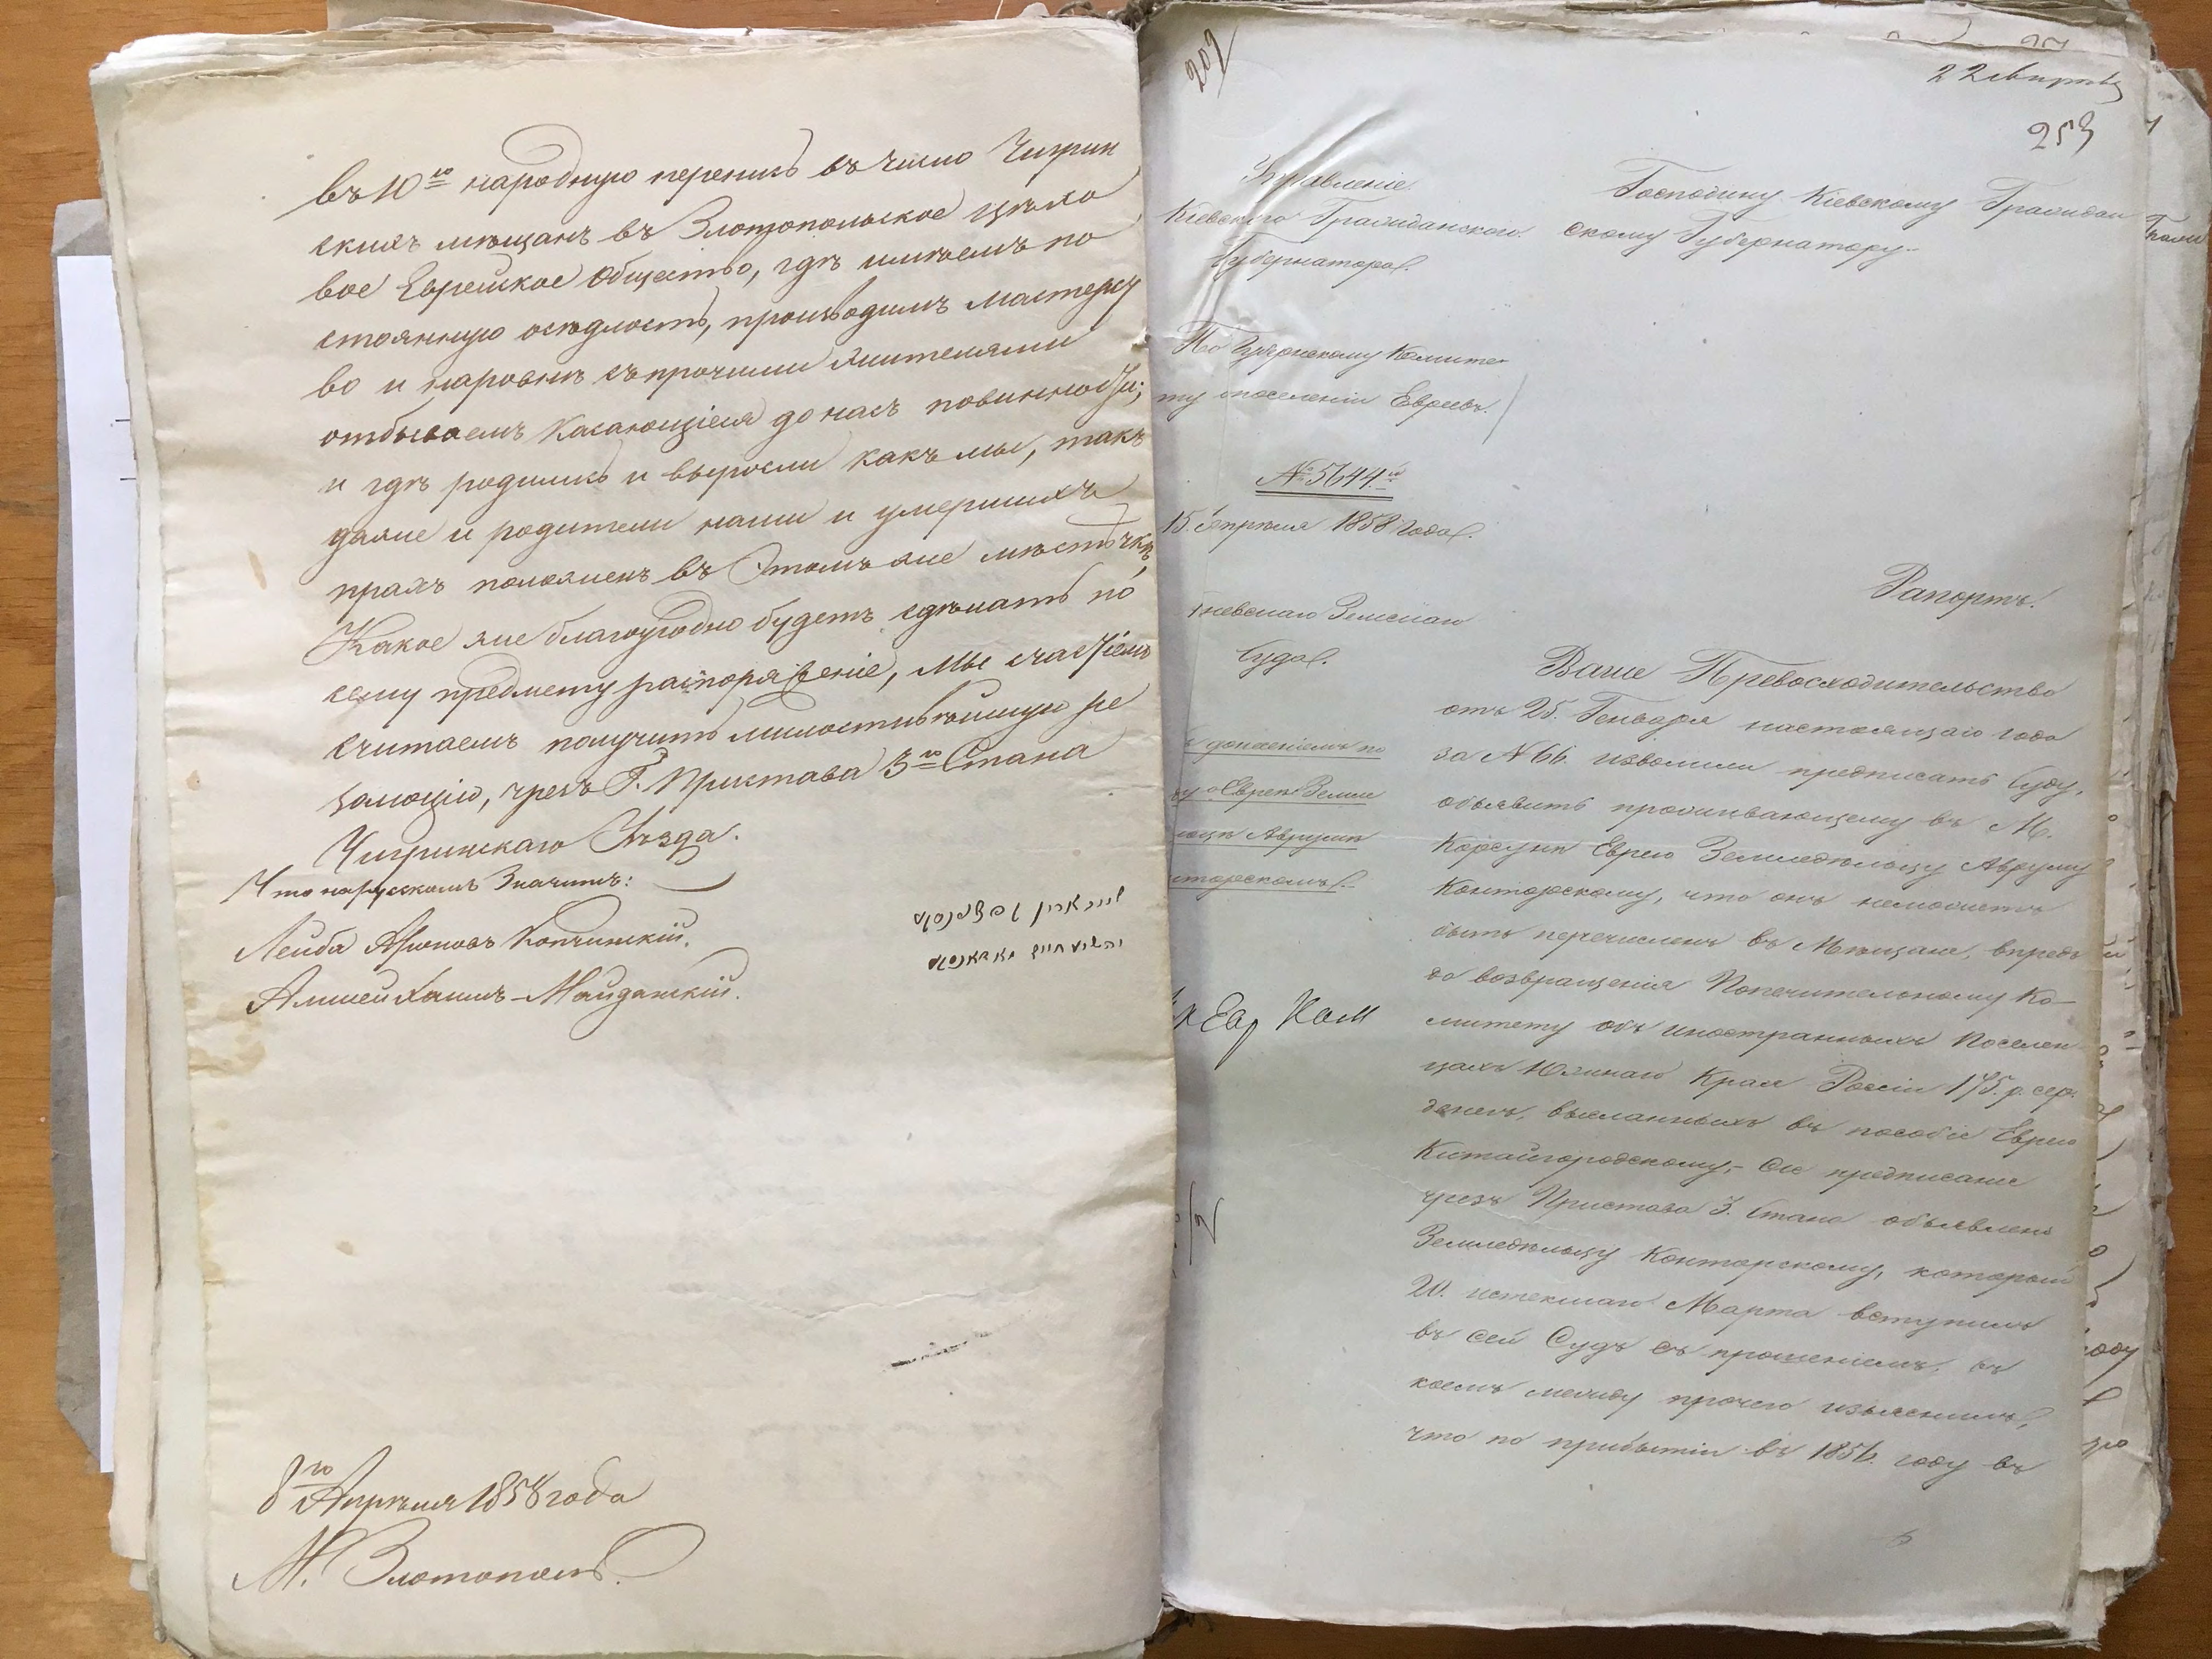 въ 10ю народную перепись въ число Чигрин
скихъ мѣщанъ въ Златопольское цѣхо
вое Еврейское Общество, гдѣ имѣемъ по
стоянную осѣдлость, производимъ мастерст
во и наровнѣ съ прочими жителями
отбываемъ касающіеся до насъ повинности;
и гдѣ родились и выросли какъ мы, такъ
даже и родители наши и умершихъ
прахъ положенъ въ Этомъ же мѣстечкѣ,
Какое же благоугодно будетъ сдѣлать по
сему предмету распоряженіе, мы счастіемъ
считаемъ получить милостивѣйшую ре
золюцію, чрезъ Г. Пристава 3го Стана
Чигринскаго Уѣзда.
Что на русскомъ Значитъ:
Лейба Ароновъ Копчинскій.
Хаимъ-Майданскій.
8го Апрѣля 1858 года
М. Златополь.
207
22 Апрѣля
253
Управленіе
Кіевскаго Гражданскаго
Губернатора.
По Губернскому Комите
ту поселенія Евреевъ.
№ 5644й
15. Апрѣля 1858 года.
Земскаго
Суда.
донесеніемъ по
Евреи Земле
Аврумѣ
нторскомъ.
Евр Ком
Господину Кіевскому Граждан
скому Губернатору
Рапортъ.
Ваше Превосходительство
отъ 25. Генваря настоящаго года
за № 66. изволили предписать Суду,
объявить проживающему въ М.
Корсунѣ Еврею Земледѣльцу Авруму
Конторскому, что онъ неможетъ
быть перечисленъ въ Мѣщане, впредь
до возвращенія Попечительному Ко-
митету объ иностранныхъ Поселен
цахъ Южнаго Края Россіи 175. р. сер.
денегъ, высланныхъ въ пособіе Еврею
Китайгородскому,- Сіе предписаніе
чрезъ Пристава 3. Стана объявлено
Земледѣльцу Конторскому, который
20. истекшаго Марта вступилъ
въ сей Судъ съ прошеніемъ, въ
коемъ между прочего изъяснилъ,
что по прибытіи въ 1856. году въ